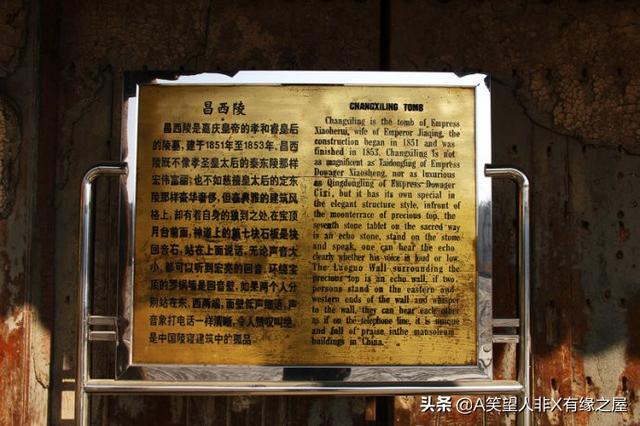 昌西陵
昌西陵是嘉庆皇帝的孝和睿皇后
的陵墓,建于1851年至1853年。昌西
陵既不像孝圣皇太后的泰东陵那样
宏伟富丽;也不如慈禧皇太后的定东
陵那样豪华奢侈,但在典雅的建筑风
格上,却有着自身的独到之处.在宝顶
月台前面,神道上的第七块石板是块
回音石,站在上面说话,无论声音大
小,都可以听到宏亮的回音,环绕宝
顶的罗锅墙是回音壁,如果两个人分
别站在东、西两端,面壁低声细语,声
音象打电话一样清晰,令人赞叹叫绝,
是中国陵寝建筑中的孤品。
CHANGXILING TOMB
Changxiling is the tomb of Empress
Xiaoherui, wife of Emperor Jiaqing, the
construction began in 1851 and was
finished in 1853. Changxiling is not
as magnificent as Taidongling of Empress
Dowager Xiaosheng, nor as luxurious
as Qingdongling of Empress Dowager
Cixi, but it has its own special in
the elegant structure style, infront of
the moonterrace of precious top, the
seventh stone tablet on the sacred way
is an echo stone, stand on the stone
and speak, one can hear the echo
clearly whether his voice is loud or low.
The Luoguo Wall surrounding the
precious top is an echo wall, if two
persons stand on the eastern and
western ends of the wall and whisper
to the wall, they can hear each other
as if on the telephone line, it is unique
and full of praise inthe mausoleum
buildings in China.
头条 @A笑望人非X有缘之屋